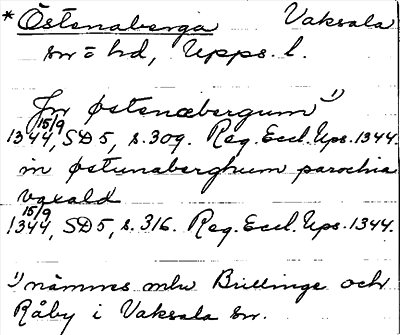 * Östenaberga Vaksala
sn = hd, Upps. l.
Jn østenæbergum 1)
15/9
1344, SD 5, s. 309. Reg. Eccl. Ups. 1344.
in østunaberghum parochia
vaxald
15/9
1344, SD 5, s. 316. Reg. Eccl. Ups. 1344.
1) nämnes mlu Brillinge och
Råby i Vaksala sn.